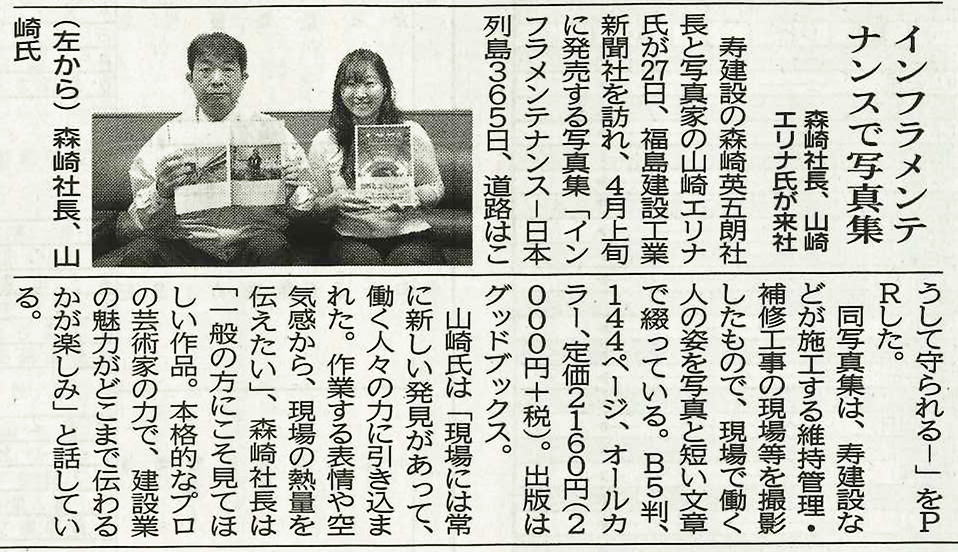 インフラメンテ
ナンスで写真集
森崎社長、山崎
エリナ氏が来社
寿建設の森崎英五朗社
長と写真家の山崎エリナ
氏が27日、福島建設工業
新聞社を訪れ、4月上旬
に発売する写真集「イン
フラメンテナンス―日本
列島365日、道路はこ
(左から)森崎社長、山
崎氏
うして守られる―」をP
Rした。
同写真集は、寿建設な
どが施工する維持管理・
補修工事の現場等を撮影
したもので、現場で働く
人の姿を写真と短い文章
で綴っている。B5判、
144ページ、オールカ
ラー、定価2160円(2
000円+税)。出版は
グッドブックス。
山崎氏は「現場には常
に新しい発見があって、
働く人々の力に引き込ま
れた。作業する表情や空
気感から、現場の熱量を
伝えたい」、森崎社長は
「一般の方にこそ見てほ
しい作品。本格的なプロ
の芸術家の力で、建設業
の魅力がどこまで伝わる
かが楽しみ」と話してい
る。